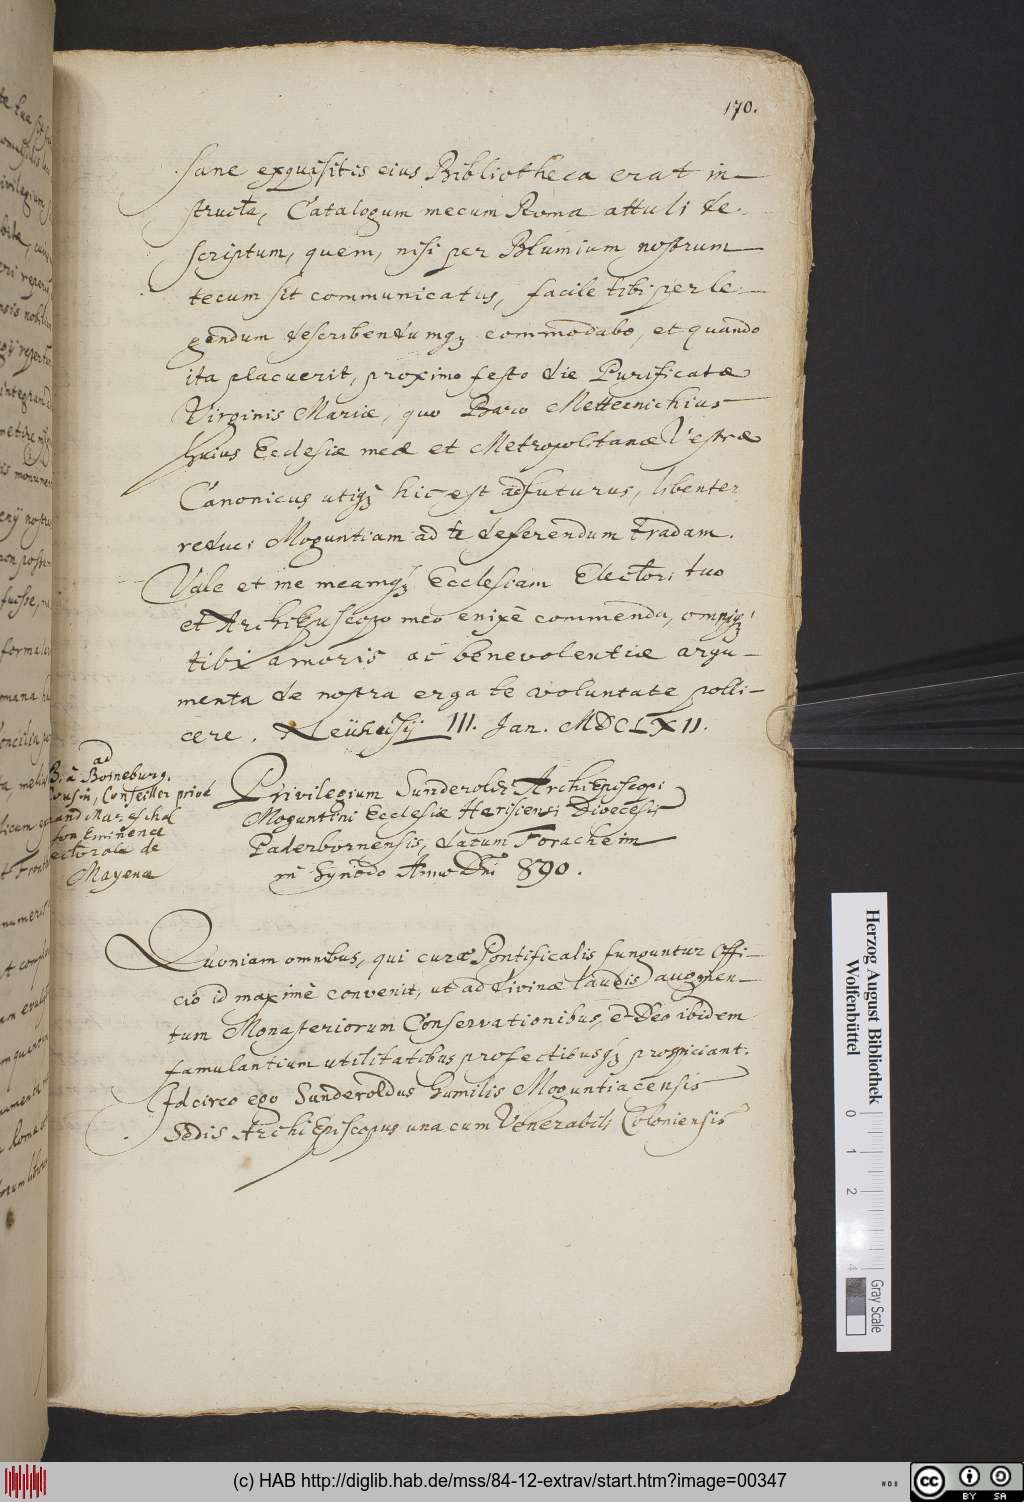 170.
sane exquisitis eius Bibliotheca erat in-
structa, Catalogum mecum Roma attuli de-
scriptum, quem, nisi per Blumium nostrum
tecum sit communicatus, facile tibi perle-
gendum describendumq; commodabo, et quando
ita placuerit, proximo festo die Purificatæ
Virginis Mariæ, quo Baro Metternichius
huius Ecclesiæ meæ et Metropolitanæ Vestræ
Canonicus utiq; hic est adfuturus, libenter
reduci Moguntiam ad te deferendum tradam.
Vale et me meamq; Ecclesiam Electori tuo
et ArchiEpiscopo meo enixè commenda, omniaq;
tibi amoris ac benevolentiæ argu-
menta de nostra erga te voluntate polli-
cere. Neühusij III. Jan. MDCLXII.
ad
B. à Boineburg.
Cousin, Conseiller privé
and Mareschal
son Eminence
ectorale de
Mayence
Privilegium Sunderoldi ArchiEpiscopi
Moguntini Ecclesiæ Herisiensi Diœcesis
Paderbornensis, datum Foracheim
in Synodo Anno Dñi 890.
Quoniam omnibus, qui curæ Pontificalis funguntur Offi-
cio id maximè convenit, ut ad divinæ laudis augmen-
tum Monasteriorum Conservationibus, et Deo ibidem
famulantium utilitatibus profectibusq; proficiant.
Idcirco ego Sunderoldus humilis Moguntiacensis
Sedis ArchiEpiscopus una cum Venerabili Coloniensis
Herzog August Bibliothek
Wolfenbüttel
0 1 2 4
Gray Scale
(c) HAB http://diglib.hab.de/mss/84-12-extrav/start.htm?image=00347
cc BY SA